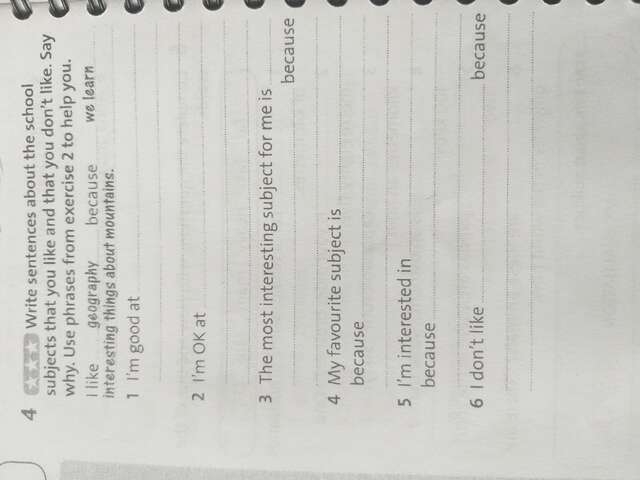 4 ★★★ Write sentences about the school
subjects that you like and that you don't like. Say
why. Use phrases from exercise 2 to help you.
I like geography because we learn
interesting things about mountains.
1 I'm good at
2 I'm OK at
3 The most interesting subject for me is
because
4 My favourite subject is
because
5 I'm interested in
because
6 I don't like because